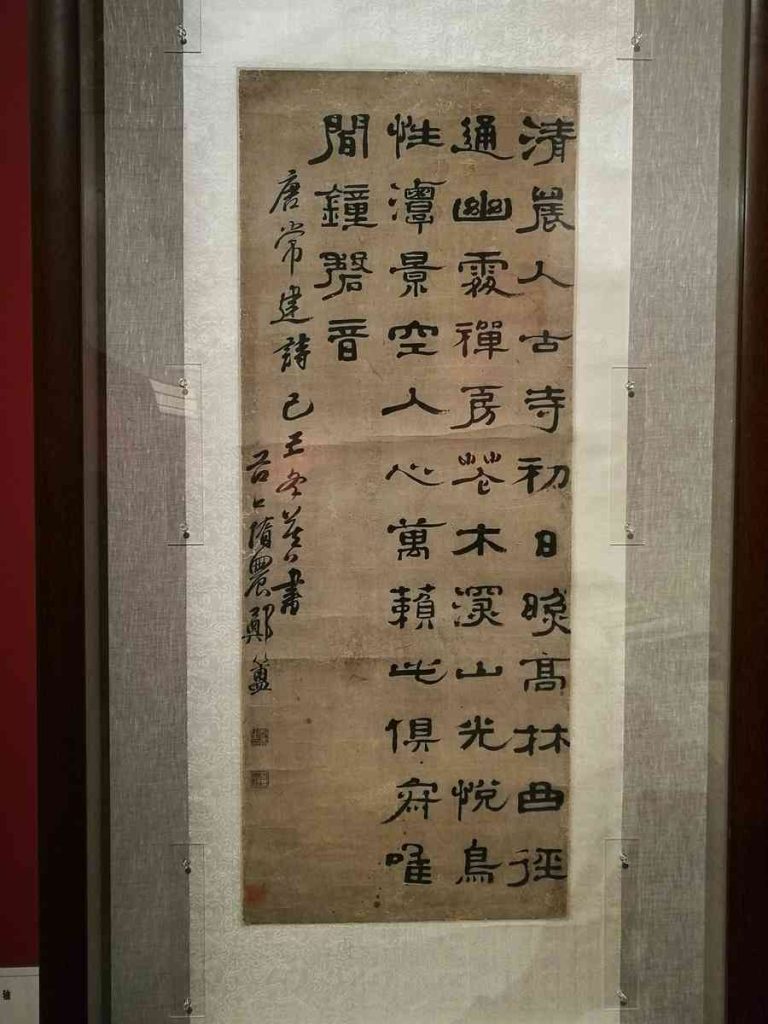 清晨入古寺初日映高林曲徑
通幽處禪房花木深山光悅鳥
性潭景空人心萬籟此俱寂唯
間鐘磬音
唐常建詩己丑冬暮書
谷口惰農鄭簠